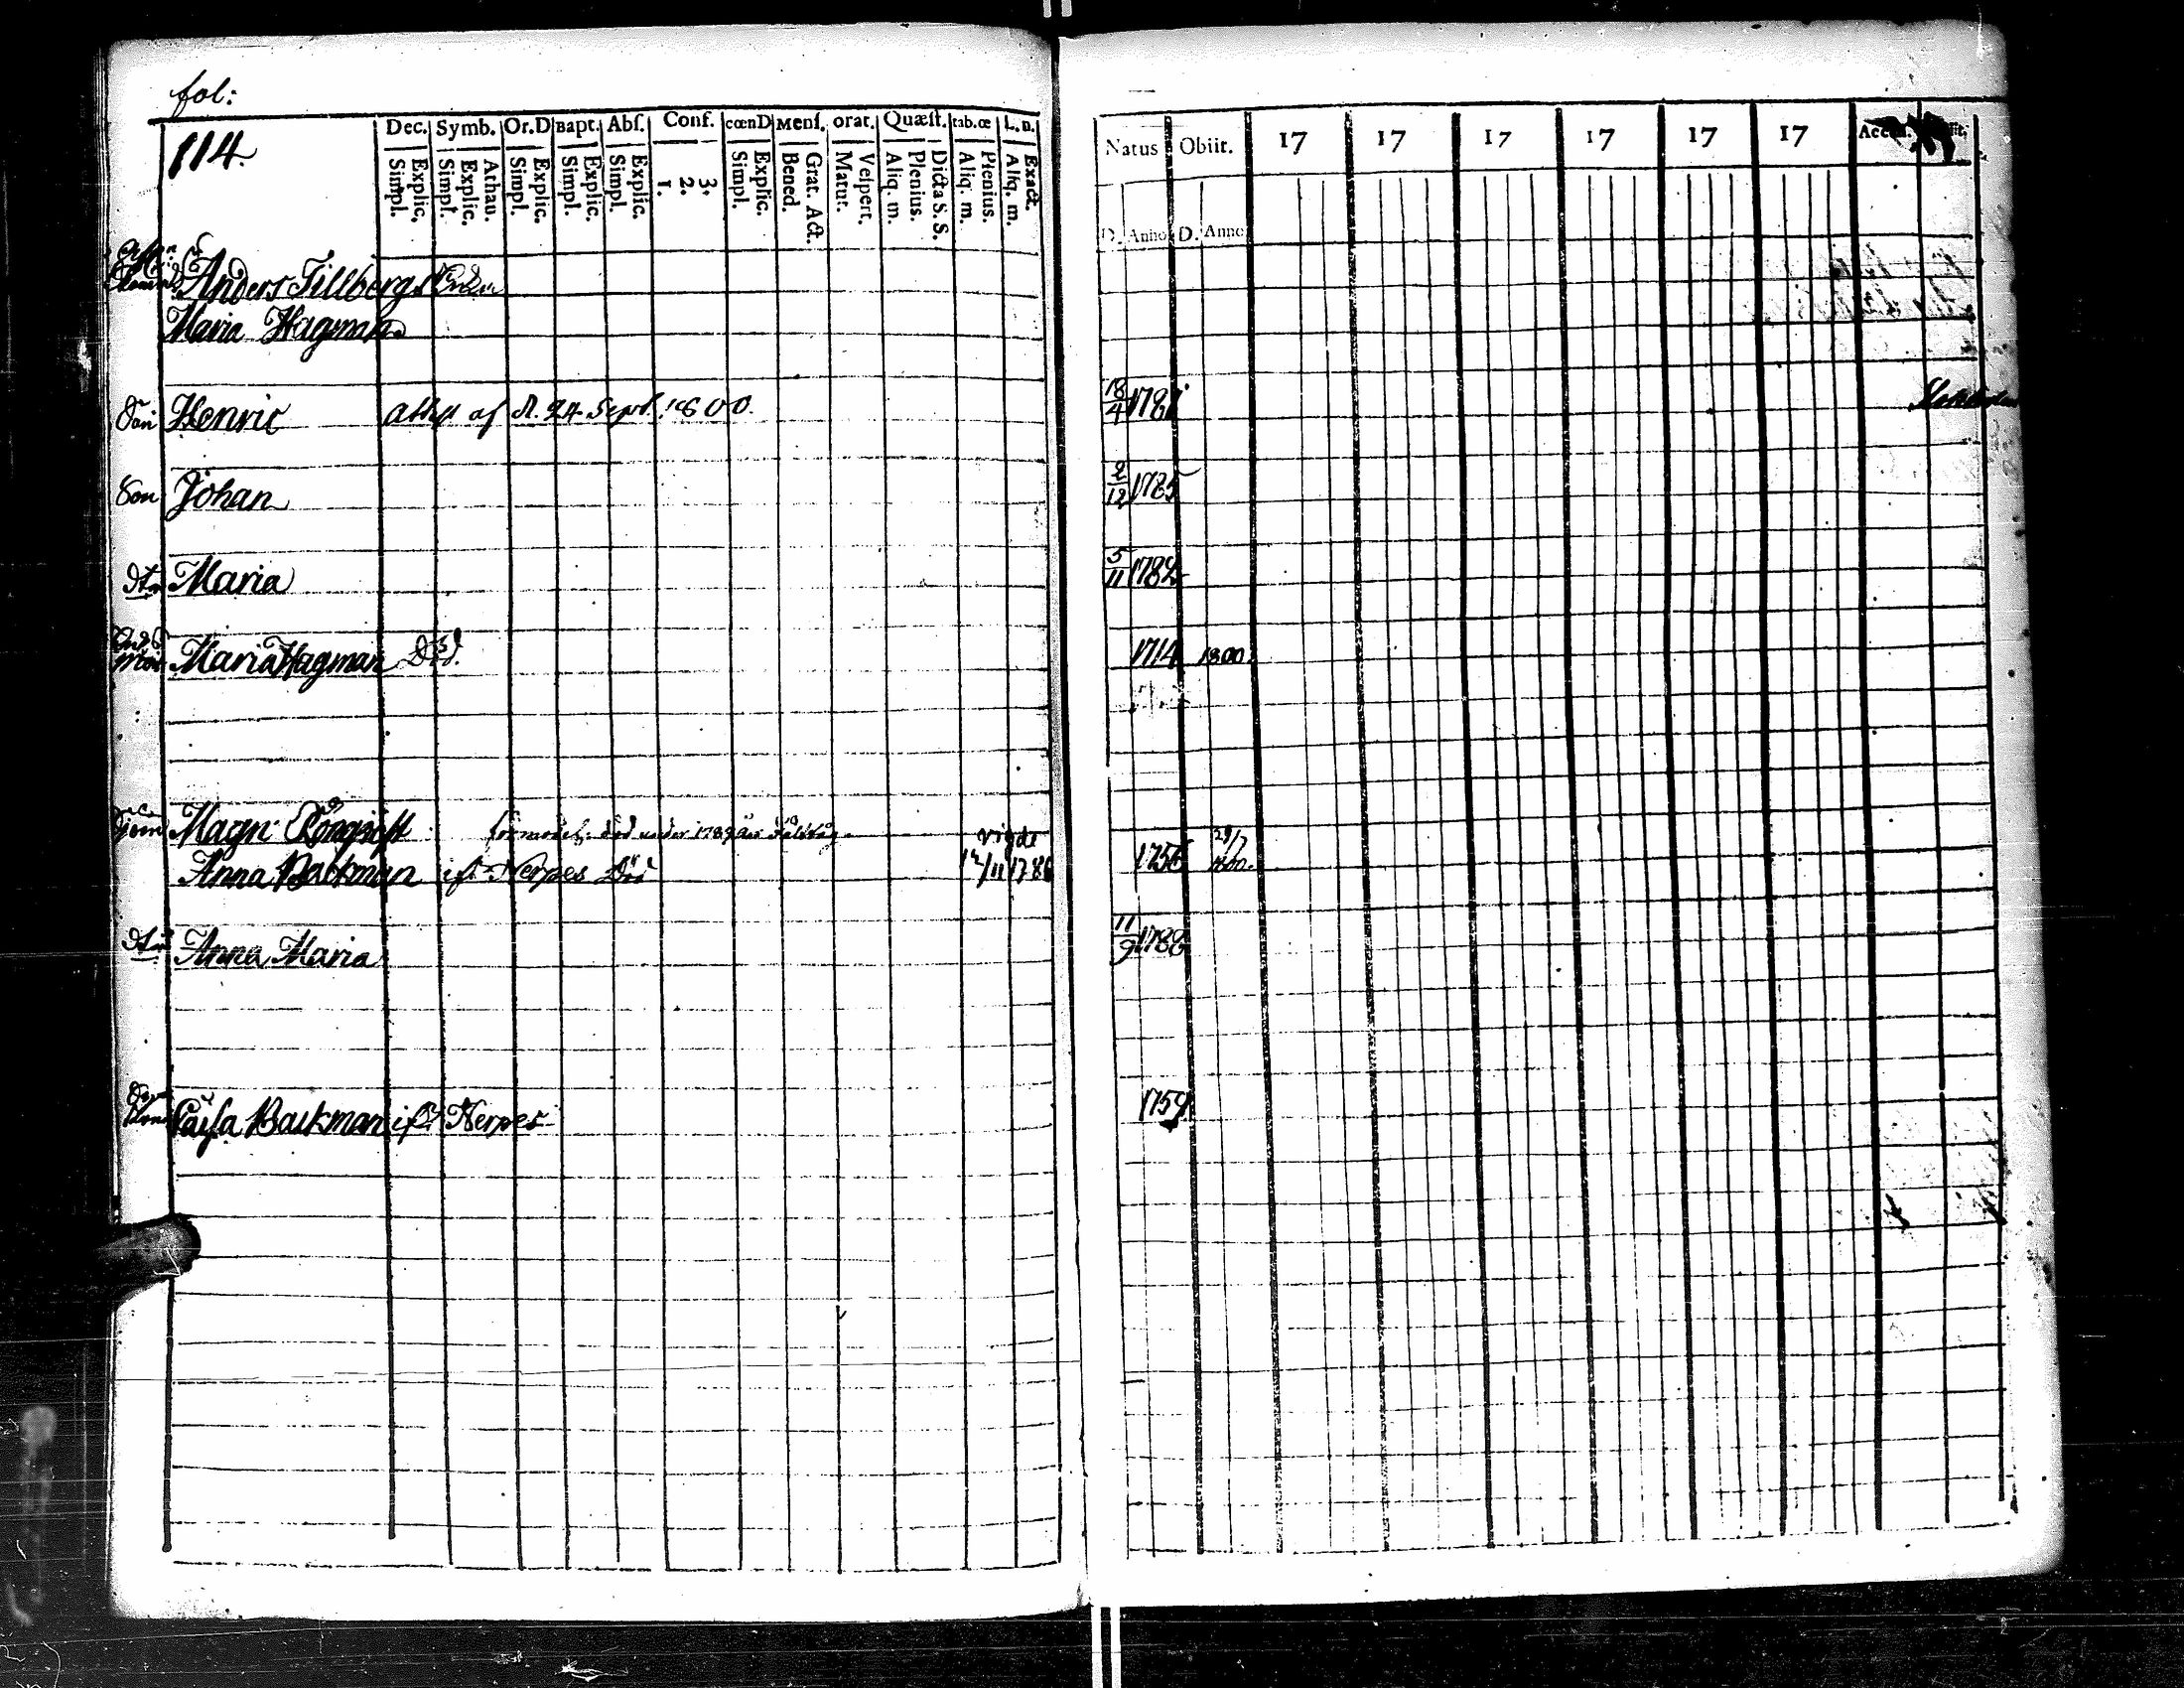 fol:
114.
Dec. Symb. Or.D Bapt. Abſ. Conf. cœnD Menſ. orat. Quæſt. tab.œ L.n.
Simpl. Explic. Simpl. Explic. Athau. Simpl. Explic. Simpl. Explic. Simpl. Explic. 1. 2. 3. Simpl. Explic. Bened. Grat. Act. Matut. Veſpert. Aliq. m. Plenius. Dicta S. S. Aliq. m. Plenius. Aliq. m. Exact.
Natus Obiit. 17 17 17 17 17 17
D. Anno D. Anno
Anders Tillbergs Enka
Maria Hagman
Son Henric af d. 24 Sept. 1800. 18/4
Son Johan 2/12 1785
dtr Maria 5/11 1782
mor Maria Hagman Död. 1714 1800.
Magn: död under 1789 års vigde
Anna Backman ifr. Nerpes Död 1756 29/7 1800.
dtr Anna Maria 11/9 1788
Cajsa Backman ifr. Nerpes 1759